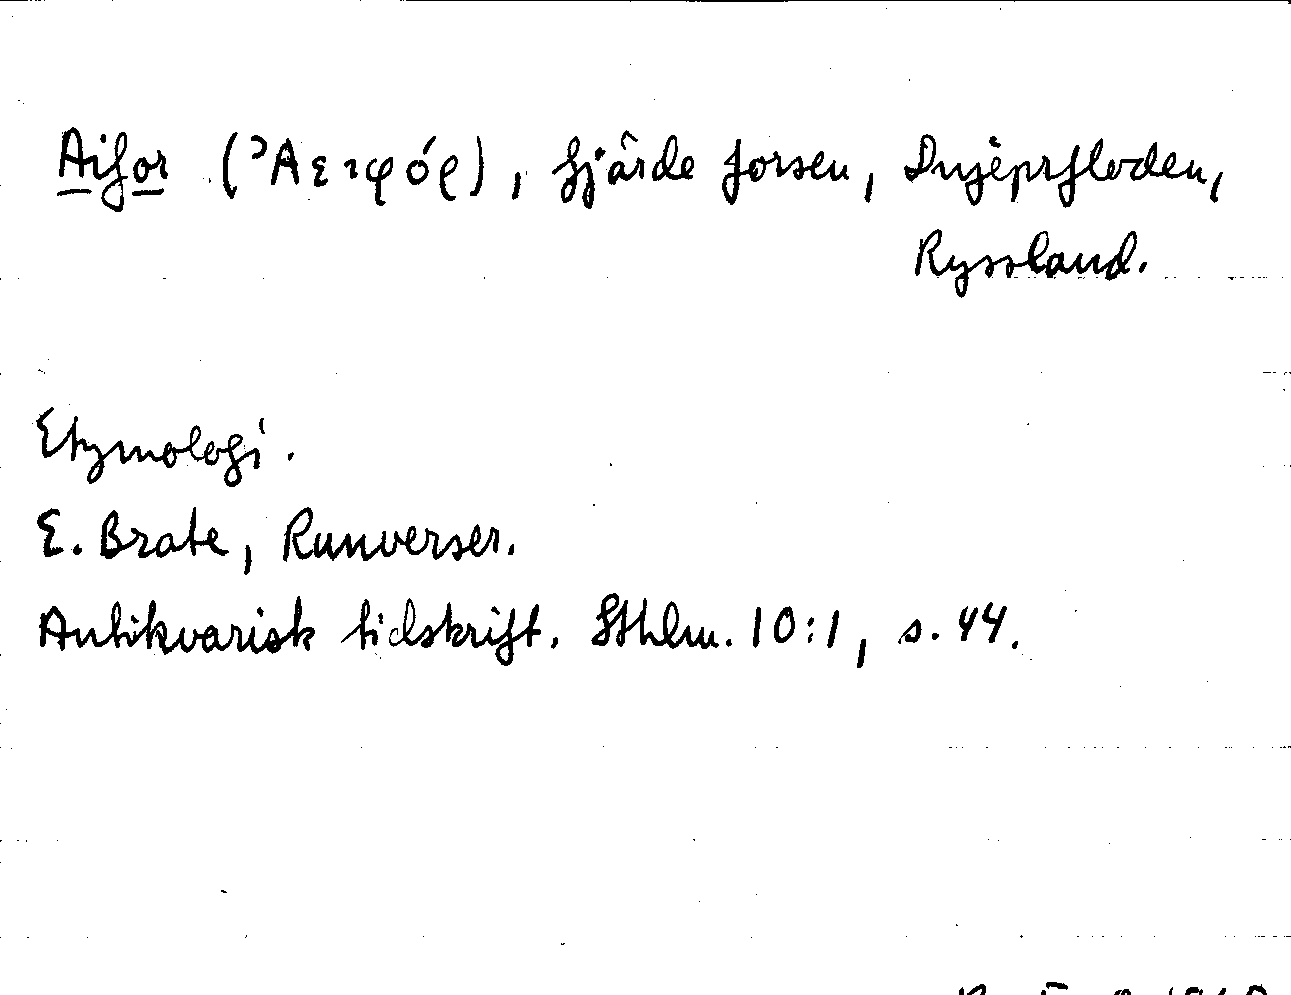 Aifor (᾿Αειφόρ), fjärde forsen, Dnjéprfloden,
Ryssland.
Etymologi.
E. Brate, Runverser.
Antikvarisk tidskrift. Sthlm. 10:1, s. 44.